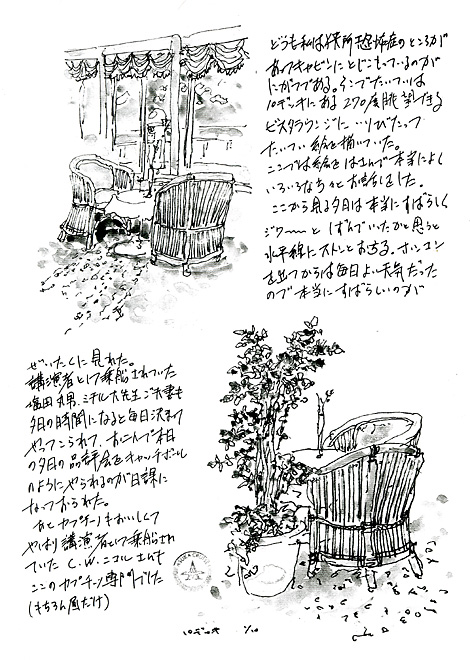 どうも私は閉所恐怖症のところが
あってキャビンにとじこもっているのが
にがてである。そこでたいていは
10デッキにある270度眺望できる
ビスタラウンジに いりびたって
たいてい絵を描いていた。
ここでは絵をはさんで本当によく
いろいろな方々とお話しをした。
ここから見る夕日は本当にすばらしく
ジワーーとしずんでいたかと思うと
水平線にストンとおちる。ホンコン
を出てからは毎日よい天気だった
ので本当にすばらしいのが
ぜいたくに見れた。
講演者として乗船されていた
塩田丸男、ミチル大先生ご夫妻も
夕日の時間になると毎日決まって
やってこられて、おふたりで本日
の夕日の品評会をキャッチボール
のようにやられるのが日課に
なっておられた。
あと カプチーノもおいしくて
やはり講演者として乗船され
ていた C.W.ニコルさんも
ここのカプチーノ専門でした
(もちろん昼だけ)
10デッキ 1/10